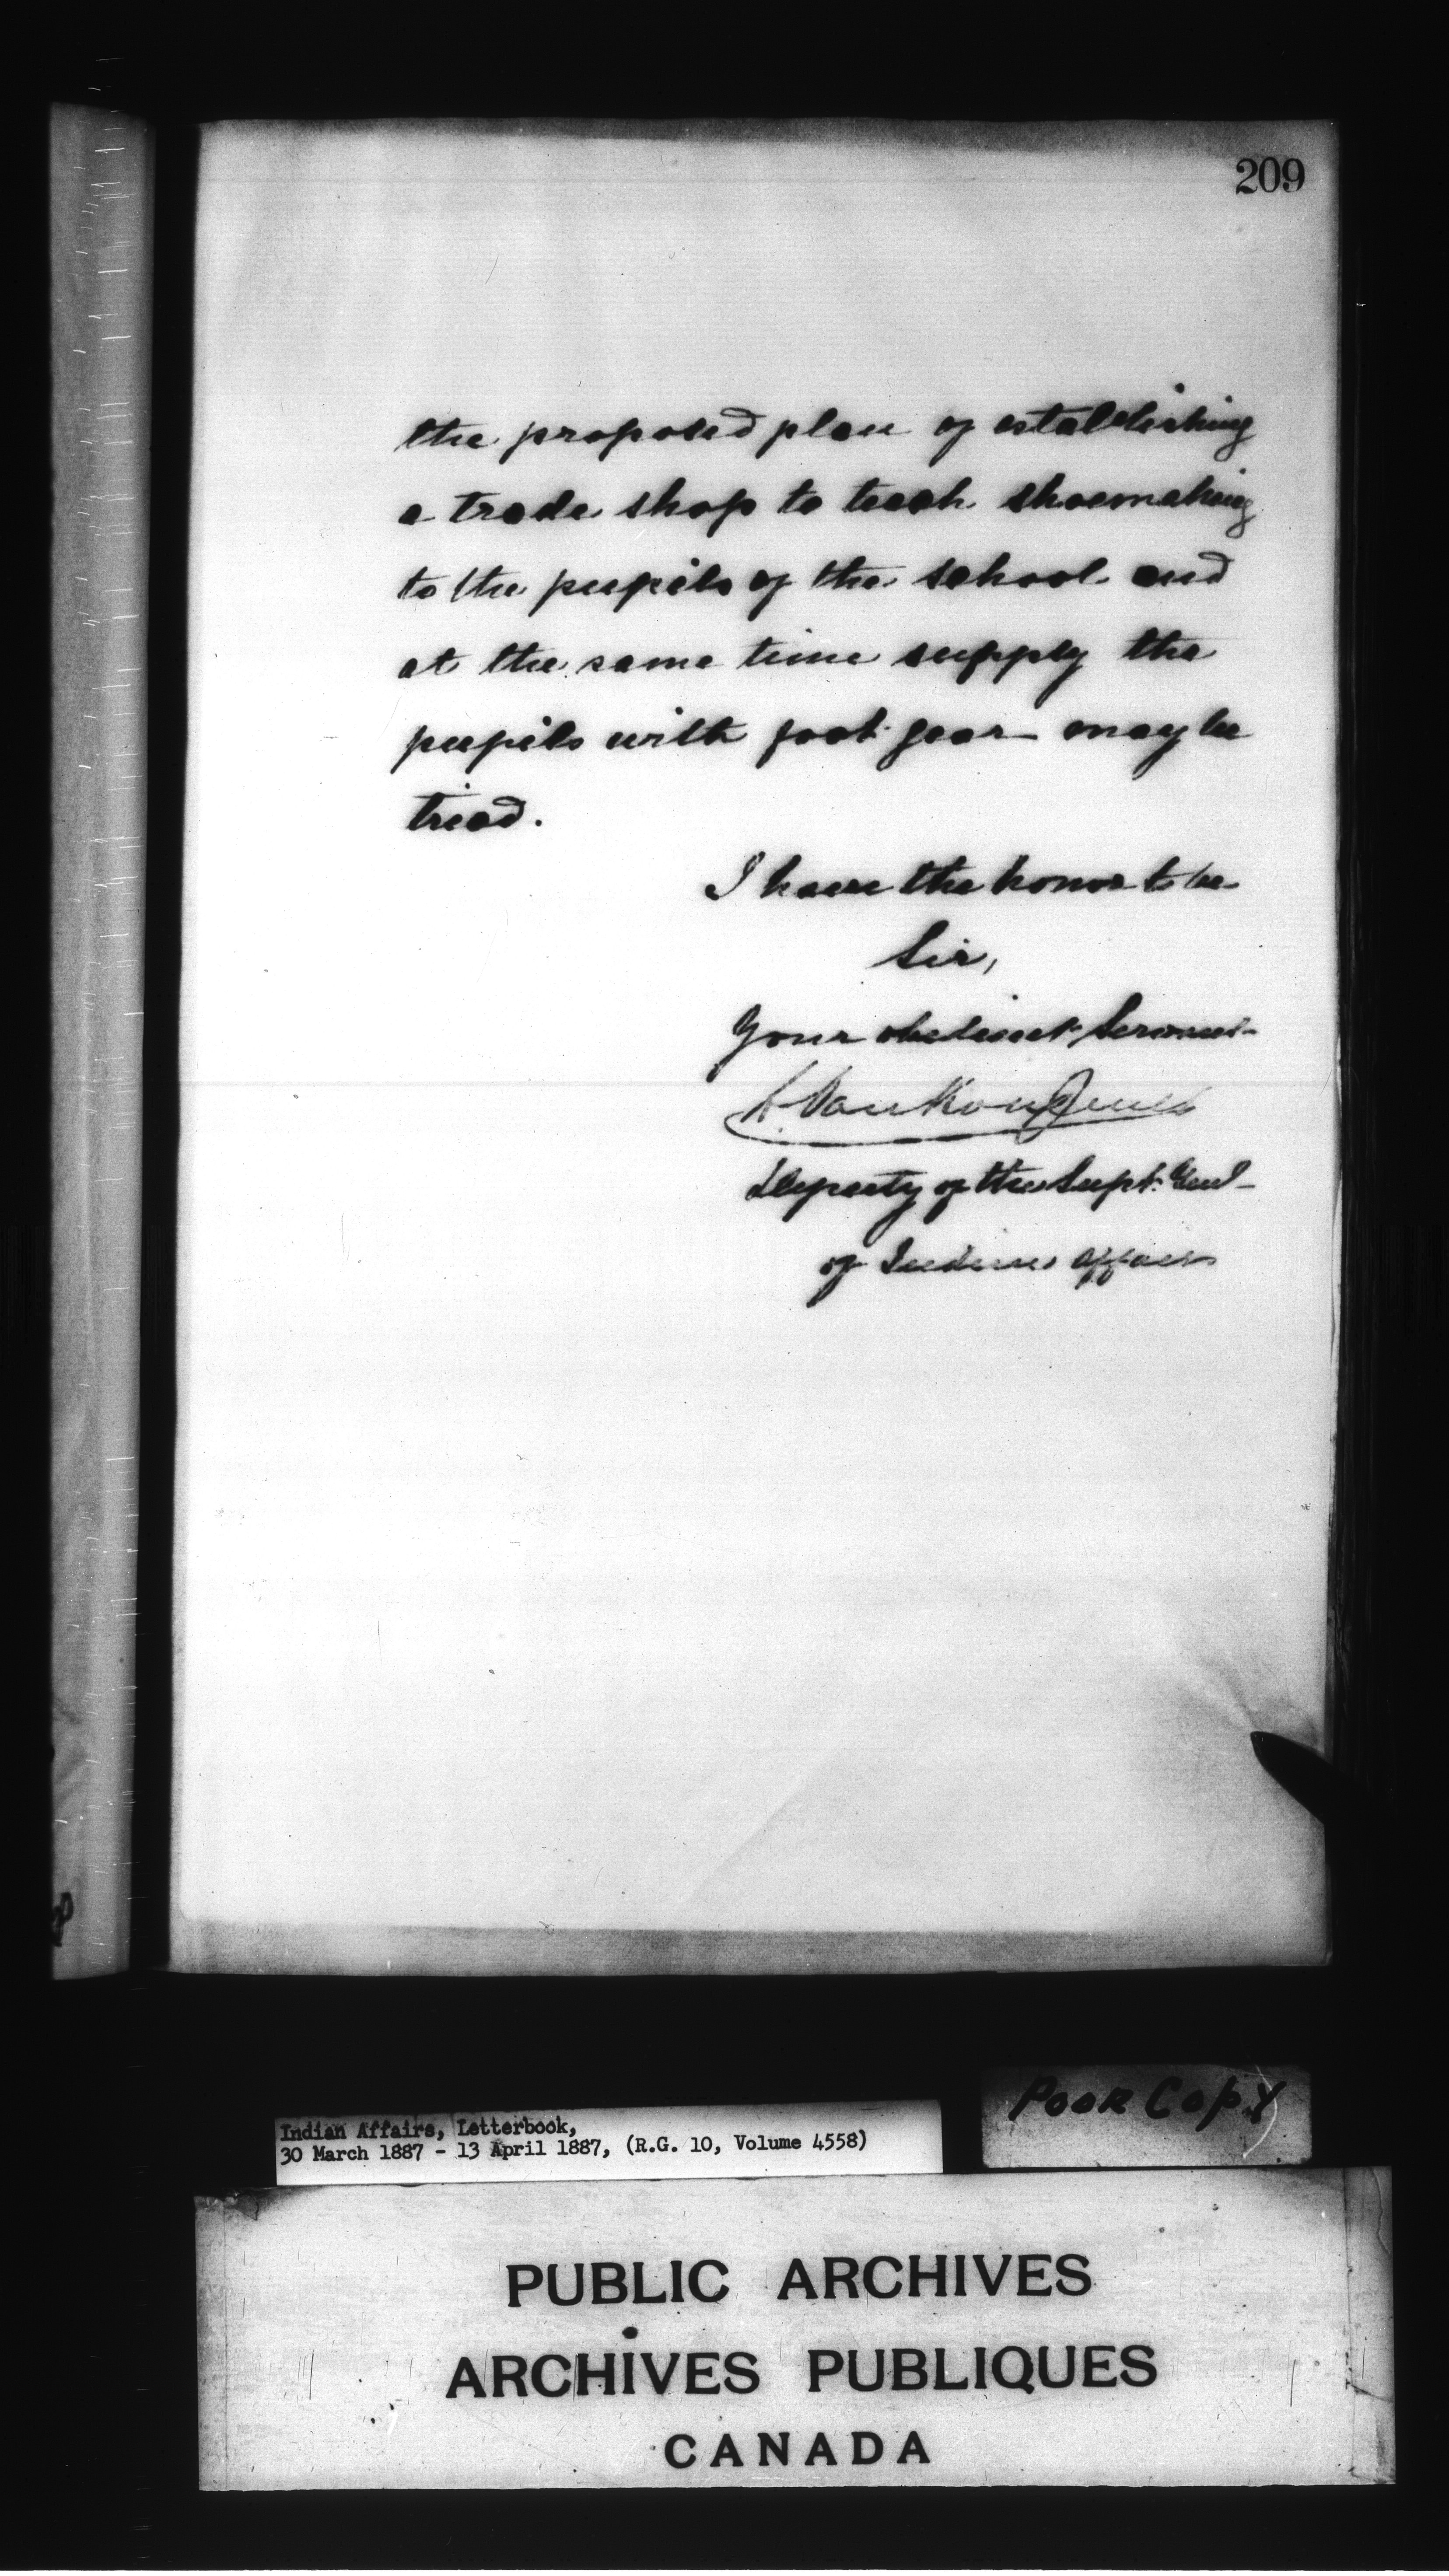 209
the proposed plan of establishing
a trade shop to teach shoemaking
to the pupils of the school and
at the same time supply the
pupils with foot gear may be
tried.
I have the honor to be
Sir,
Your obedient Servant
L. VanKoughnet
Deputy of the Supt. Genl
of Indian Affairs
Poor Copy
Indian Affairs, Letterbook,
30 March 1887 - 13 April 1887, (R.G. 10, Volume 4558)
PUBLIC ARCHIVES
ARCHIVES PUBLIQUES
CANADA